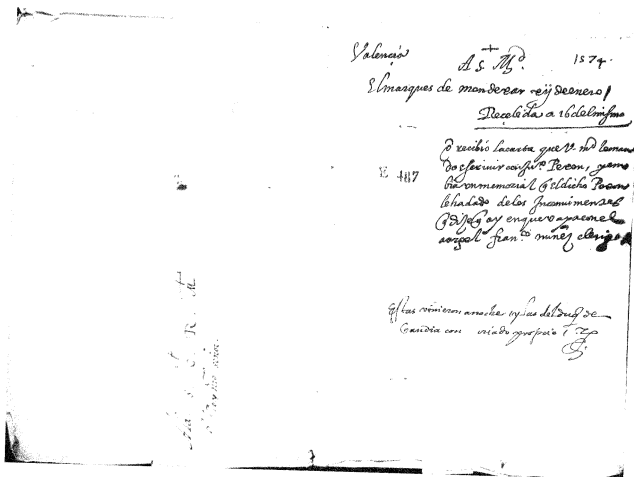 Valencia
A S. M.d 1574.
El marques de mondexar eij de enero /
Recebida a 16 del mismo
q recibio la carta que V. Md le man
do escriuir con Ju.o Pecon, y em
bia un memorial q el dicho Pecon
le ha dado de los Inconuinientes
q dize q ay en que vaya con el
fran.co nuñez clerigo
E 487
Estas vinieron anoche y las del duq de
Gandia con criado proprio
A la S. C. R. M.
el Rey nro señor.